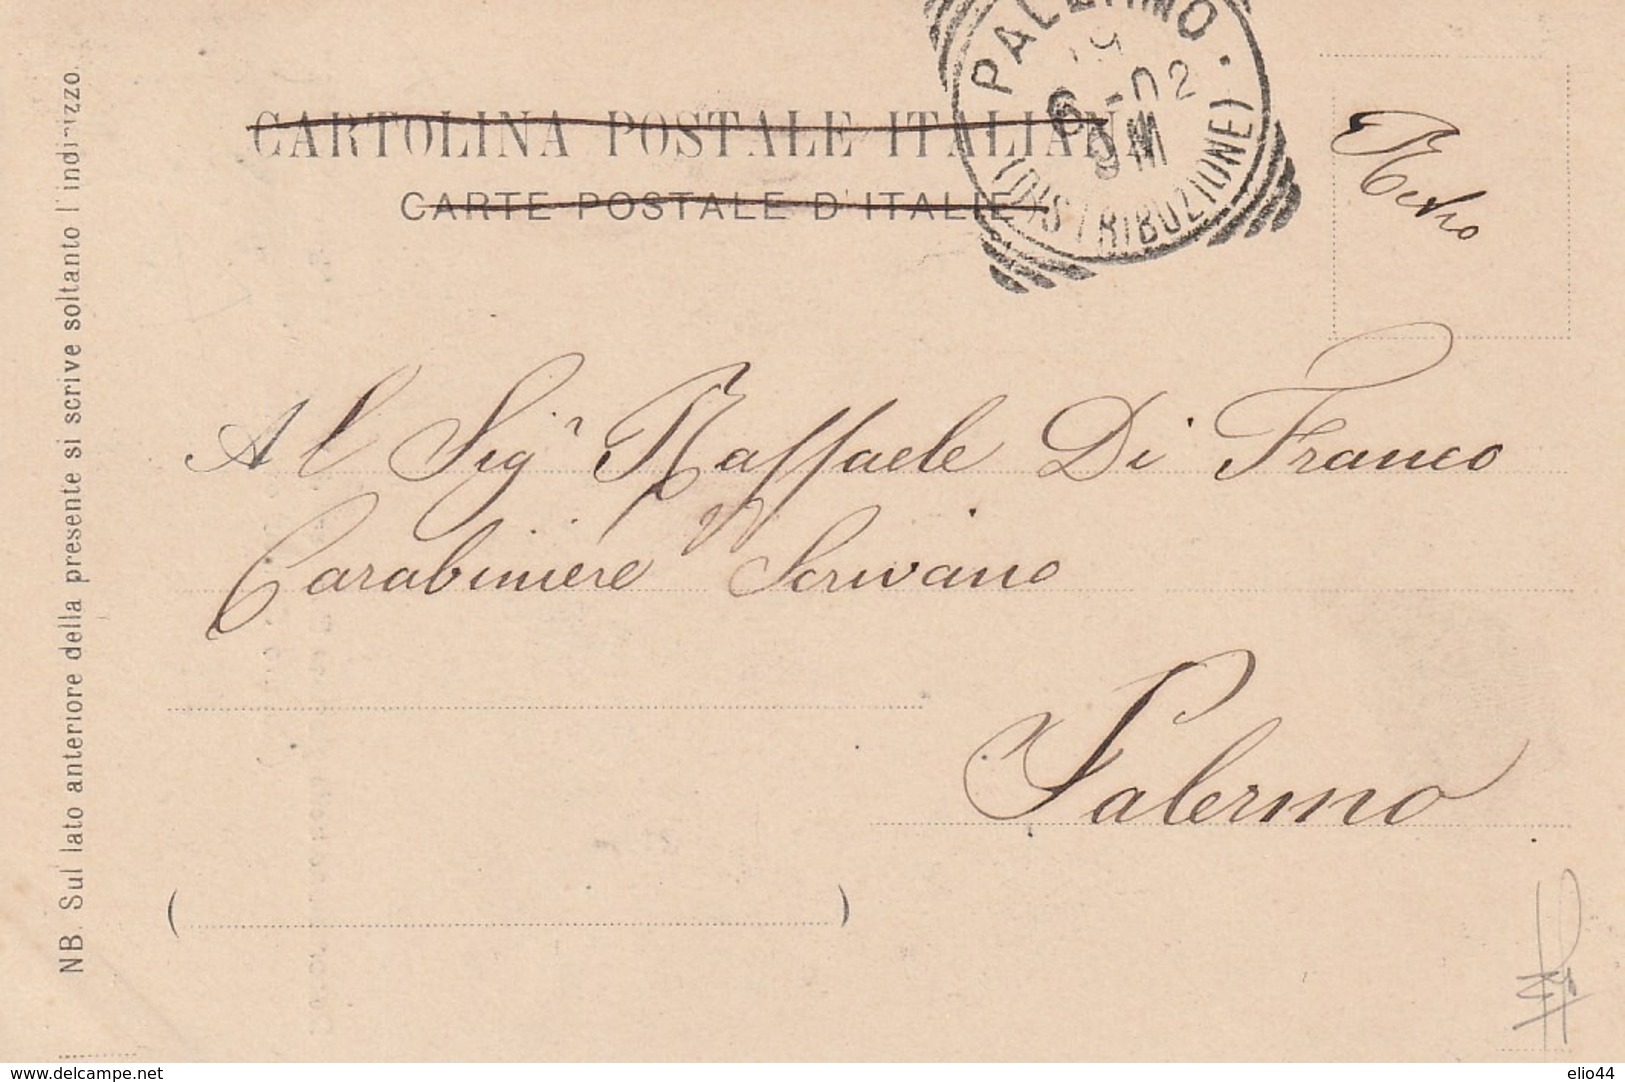 CARTOLINA POSTALE ITALIANA
CARTE POSTALE D'ITALIE
PALERMO
19
6 - 02
9 M
(DISTRIBUZIONE)
Retro
Al Sigr Raffaele Di Franco
Carabiniere Scrivano
Palermo
( )
NB. Sul lato anteriore della presente si scrive soltanto l'indirizzo.
www.delcampe.net
elio44